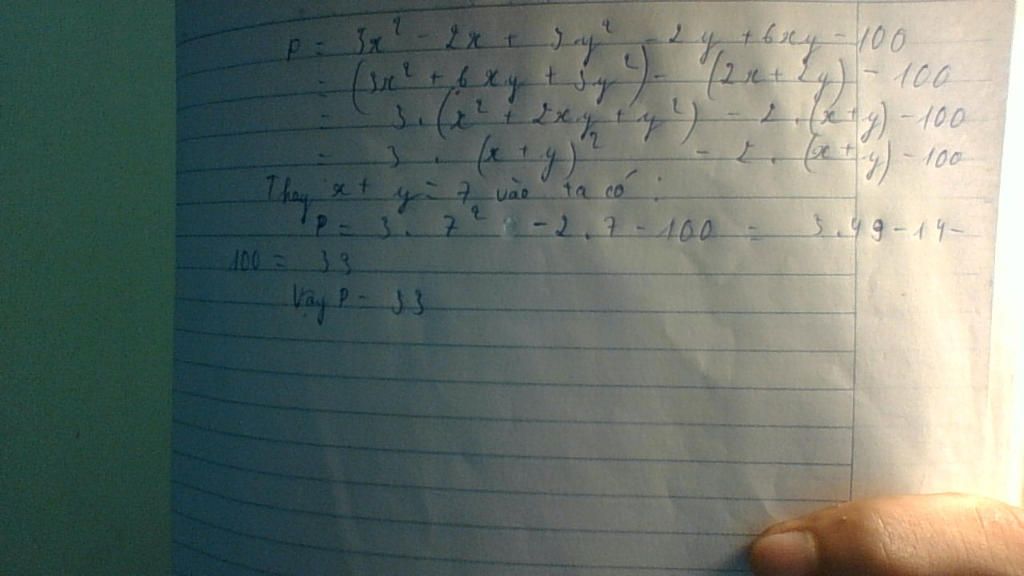 P = 3x² - 2x + 3y² - 2y + 6xy - 100
= (3x² + 6xy + 3y²) - (2x + 2y) - 100
= 3.(x² + 2xy + y²) - 2.(x+y) - 100
= 3.(x+y)² - 2.(x+y) - 100
Thay x + y = 7 vào ta có:
P = 3.7² - 2.7 - 100 = 3.49 - 14 -
100 = 33
Vậy P = 33